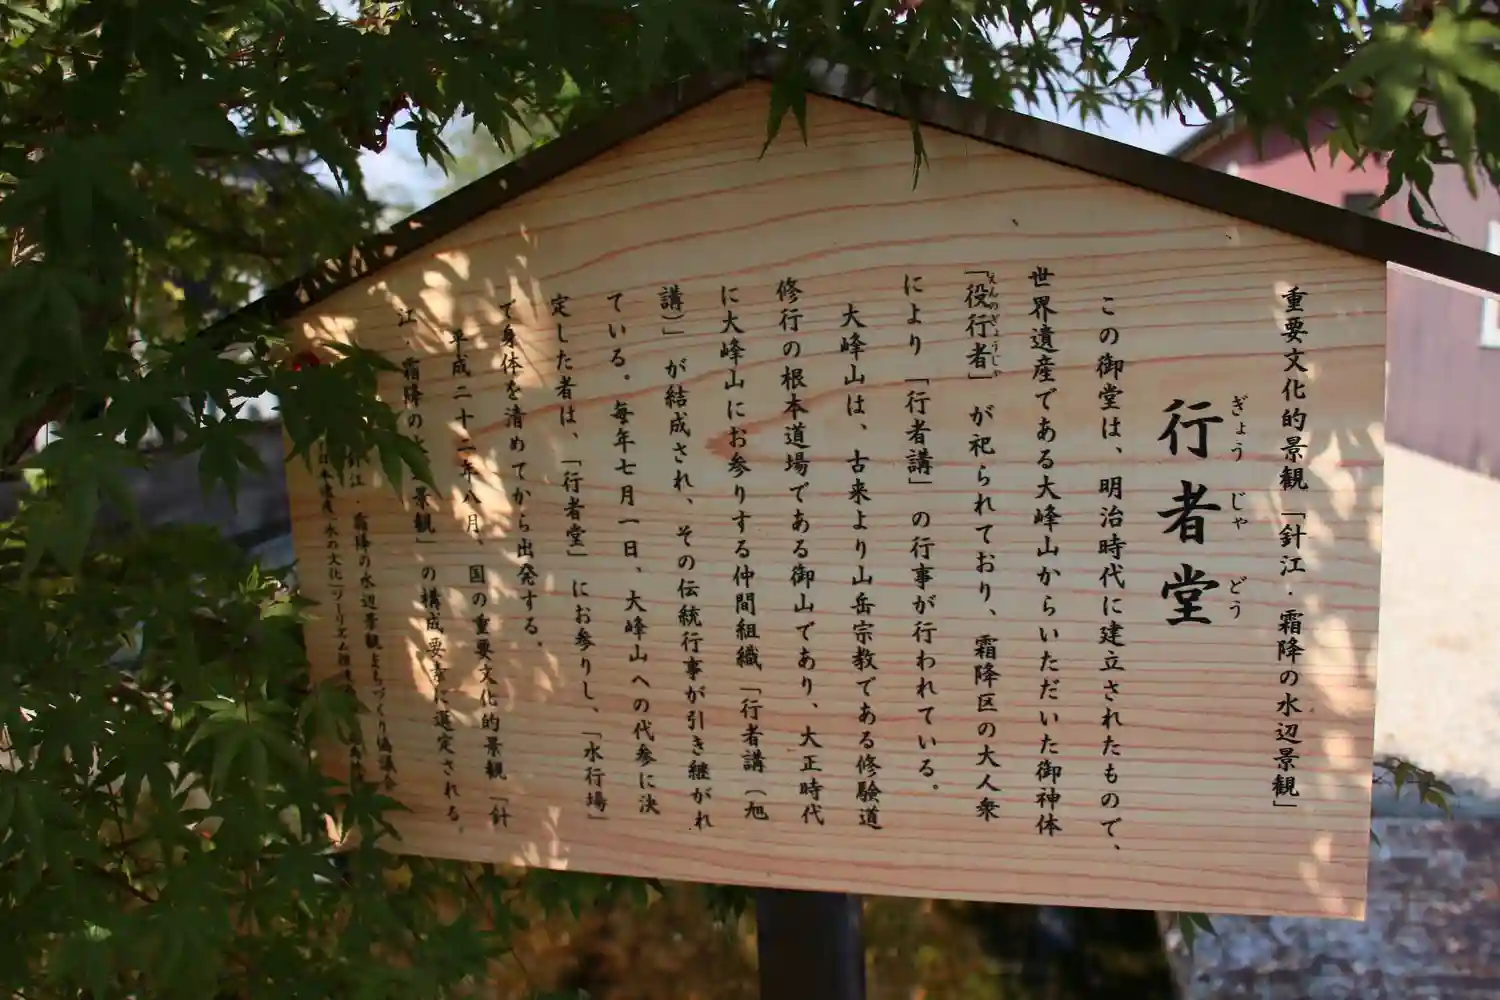 重要文化的景観「針江・霜降の水辺景観」
ぎょう じゃ どう
行者堂
この御堂は、明治時代に建立されたもので、
世界遺産である大峰山からいただいた御神体
えんのぎょうじゃ
「役行者」が祀られており、霜降区の大人衆
により「行者講」の行事が行われている。
大峰山は、古来より山岳宗教である修験道
修行の根本道場である御山であり、大正時代
に大峰山にお参りする仲間組織「行者講（旭
講）」が結成され、その伝統行事が引き継がれ
ている。毎年七月一日、大峰山への代参に決
定した者は、「行者堂」にお参りし、「水行場」
で身体を清めてから出発する。
平成二十二年八月、国の重要文化的景観「針
江・霜降の水辺景観」の構成要素に選定される。
針江・霜降の水辺景観まちづくり協議会
日本遺産 水の文化ツーリズム推進